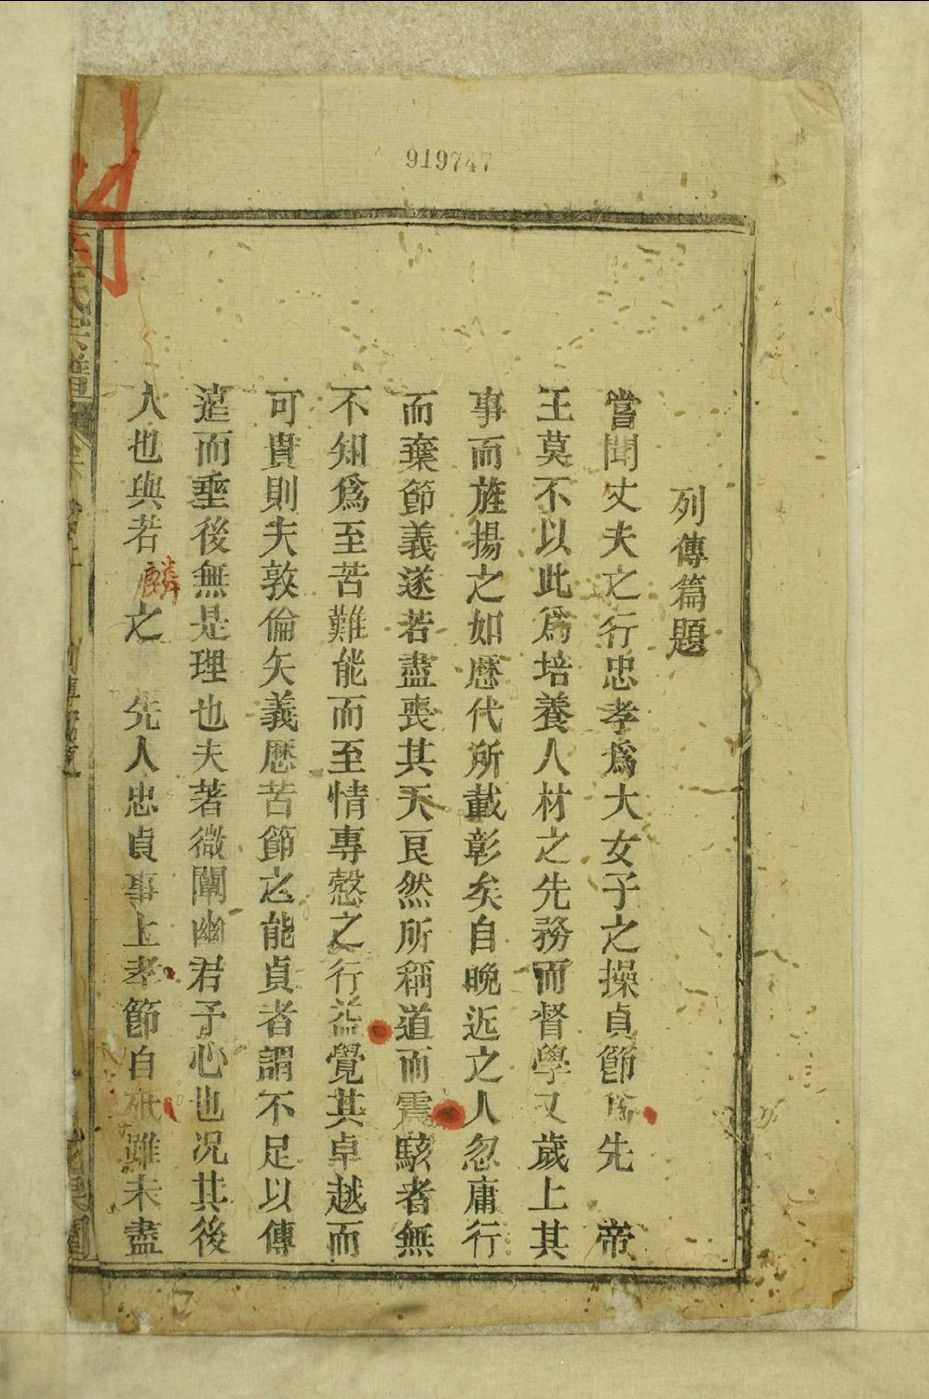 919747
列傳篇題
嘗聞丈夫之行忠孝爲大女子之操貞節爲先 帝
王莫不以此爲培養人材之先務而督學又歲上其
事而旌揚之如歷代所載彰矣自晚近之人忽庸行
而棄節義遂若盡喪其天良然所稱道而震駭者無
不知爲至苦難能而至情專慤之行益覺其卓越而
可貴則夫敦倫矢義歷苦節之能貞者謂不足以傳
遠而垂後無是理也夫著微闡幽君子心也况其後
人也與若麟之 先人忠貞事上孝節自矢雖未盡
氏宗譜